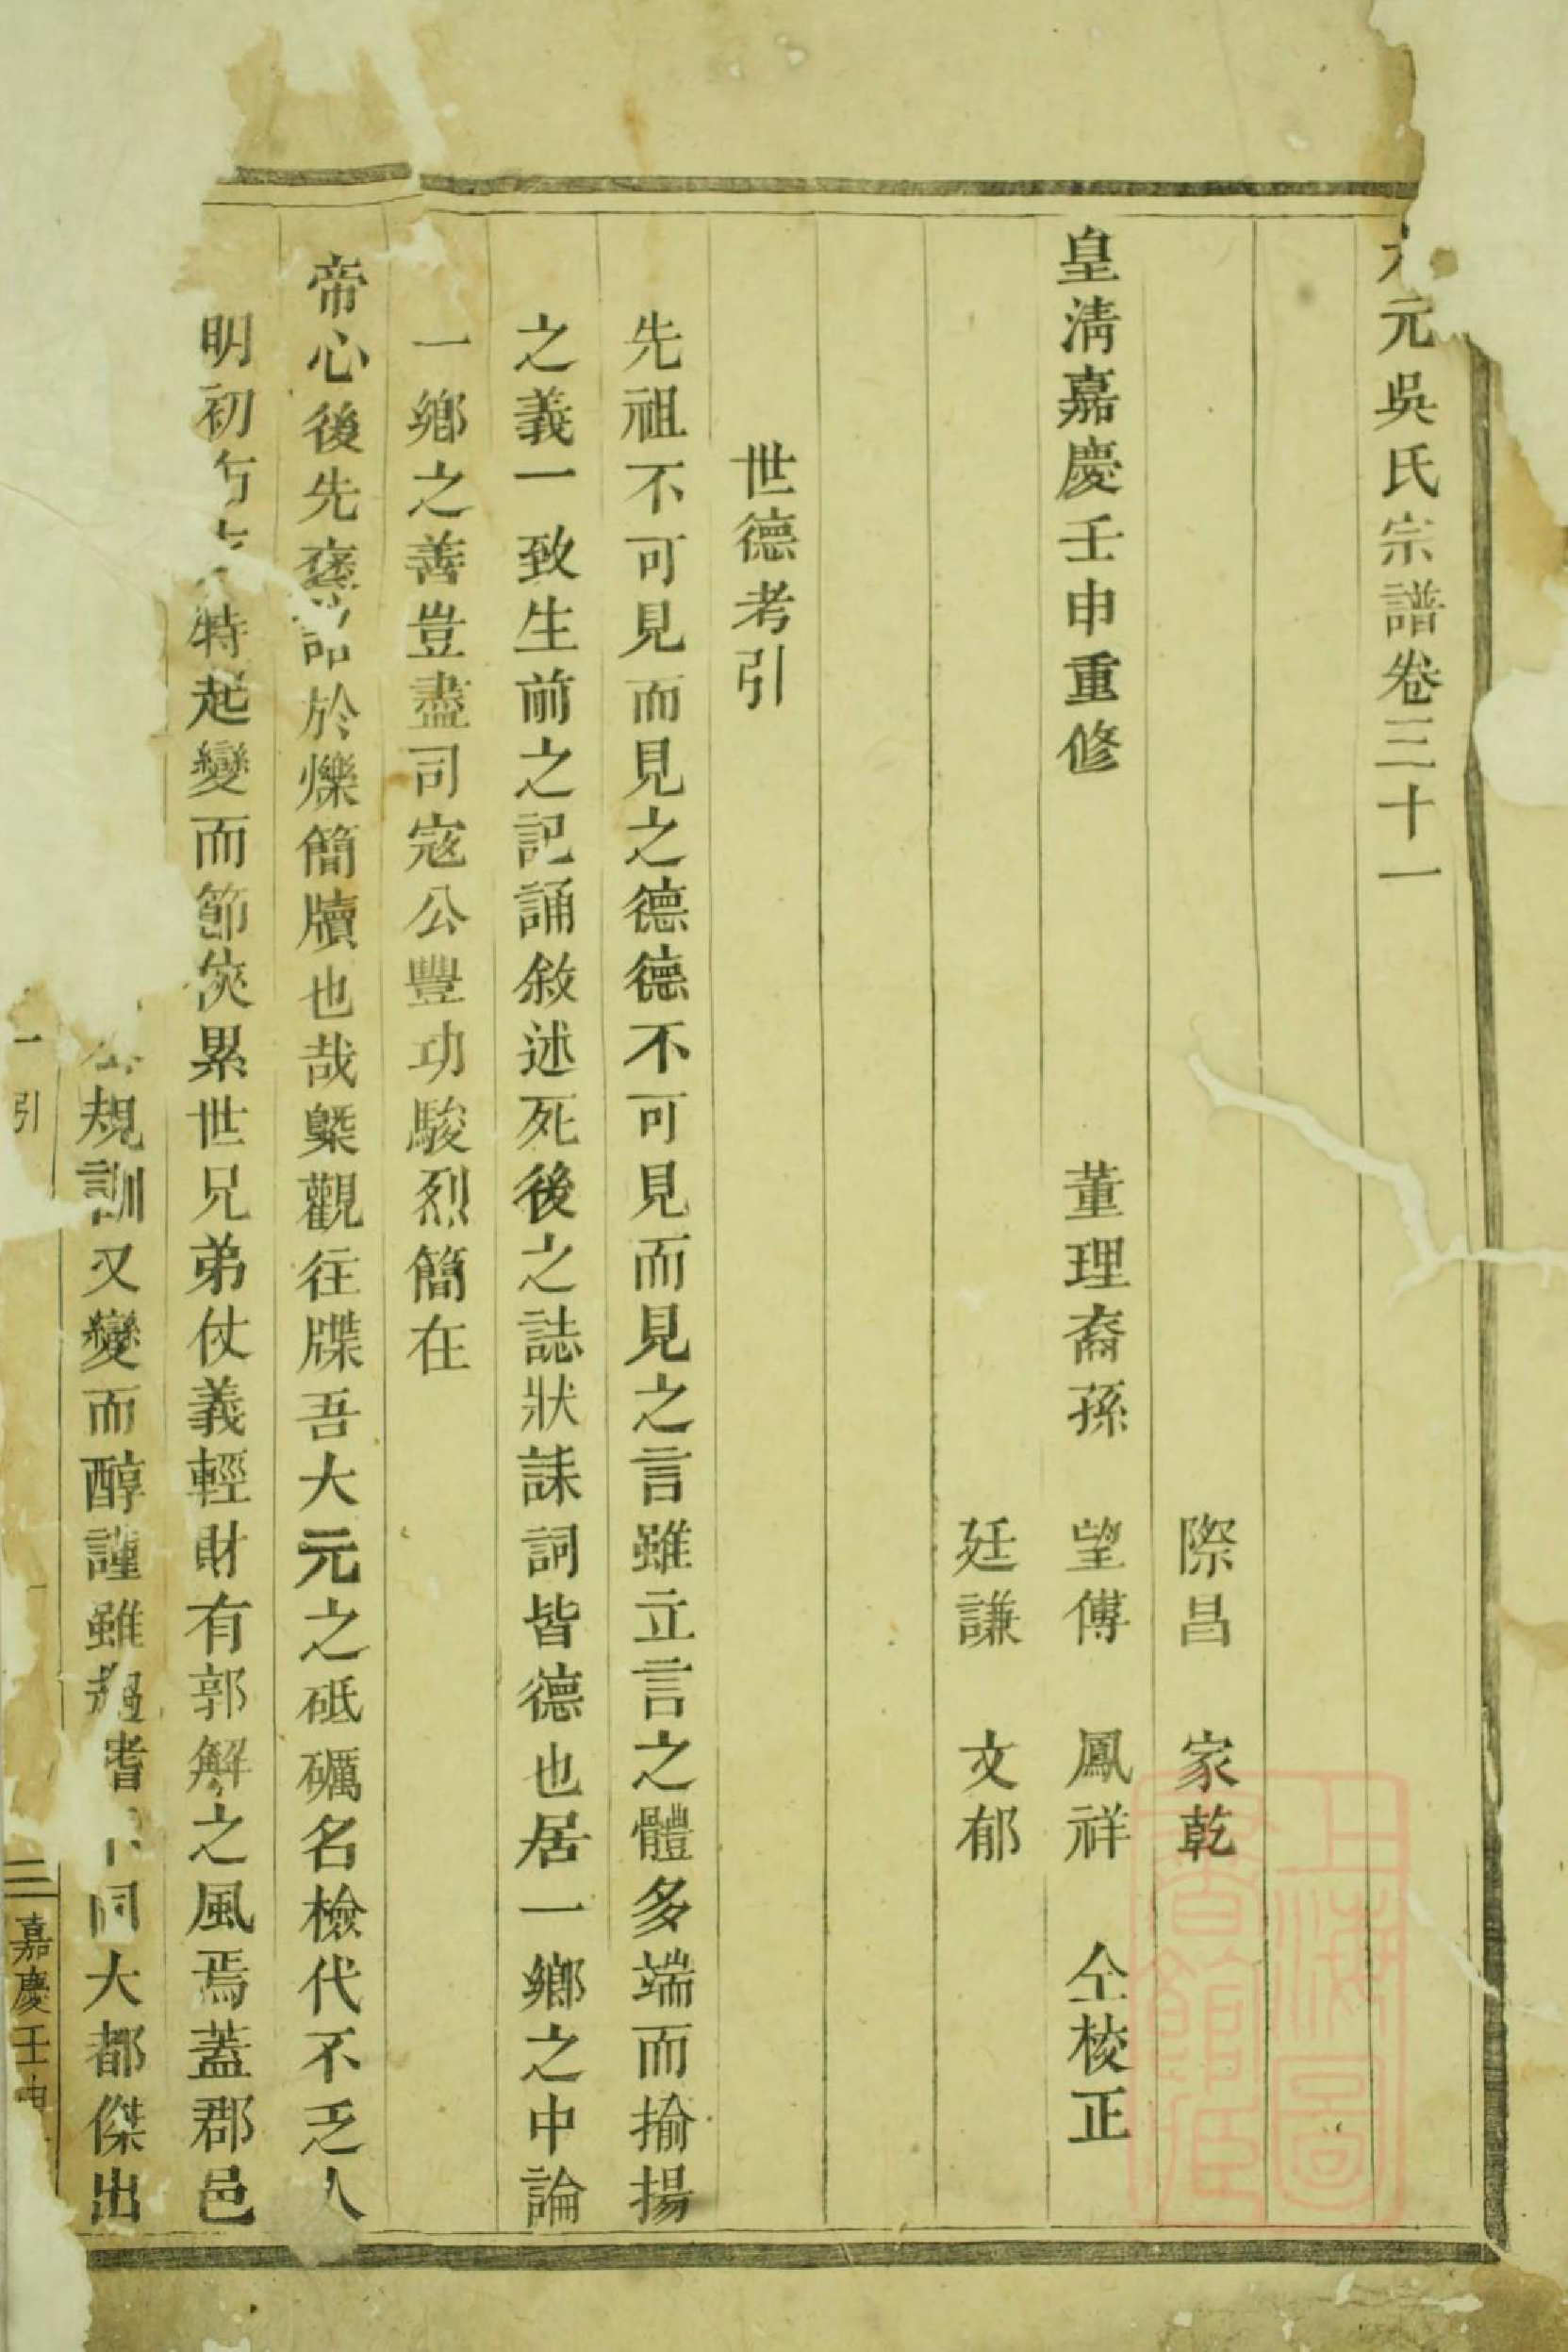 元吳氏宗譜卷三十一
際昌　家乾
皇淸嘉慶壬申重修　董理裔孫　望傅　鳳祥　仝校正
廷謙　文郁
世德考引
先祖不可見而見之德德不可見而見之言雖立言之體多端而揄揚
之義一致生前之記誦敘述死後之誌狀誄詞皆德也居一鄉之中論
一鄉之善豈盡司寇公豐功駿烈簡在
帝心後先襃於爍簡牘也哉槩觀往牒吾大元之砥礪名檢代不乏人
明初特起變而節俠累世兄弟仗義輕財有郭解之風焉蓋郡邑
規訓又變而醇謹雖趨嗜同大都傑出
一引
三
嘉慶壬申
上海圖書館藏